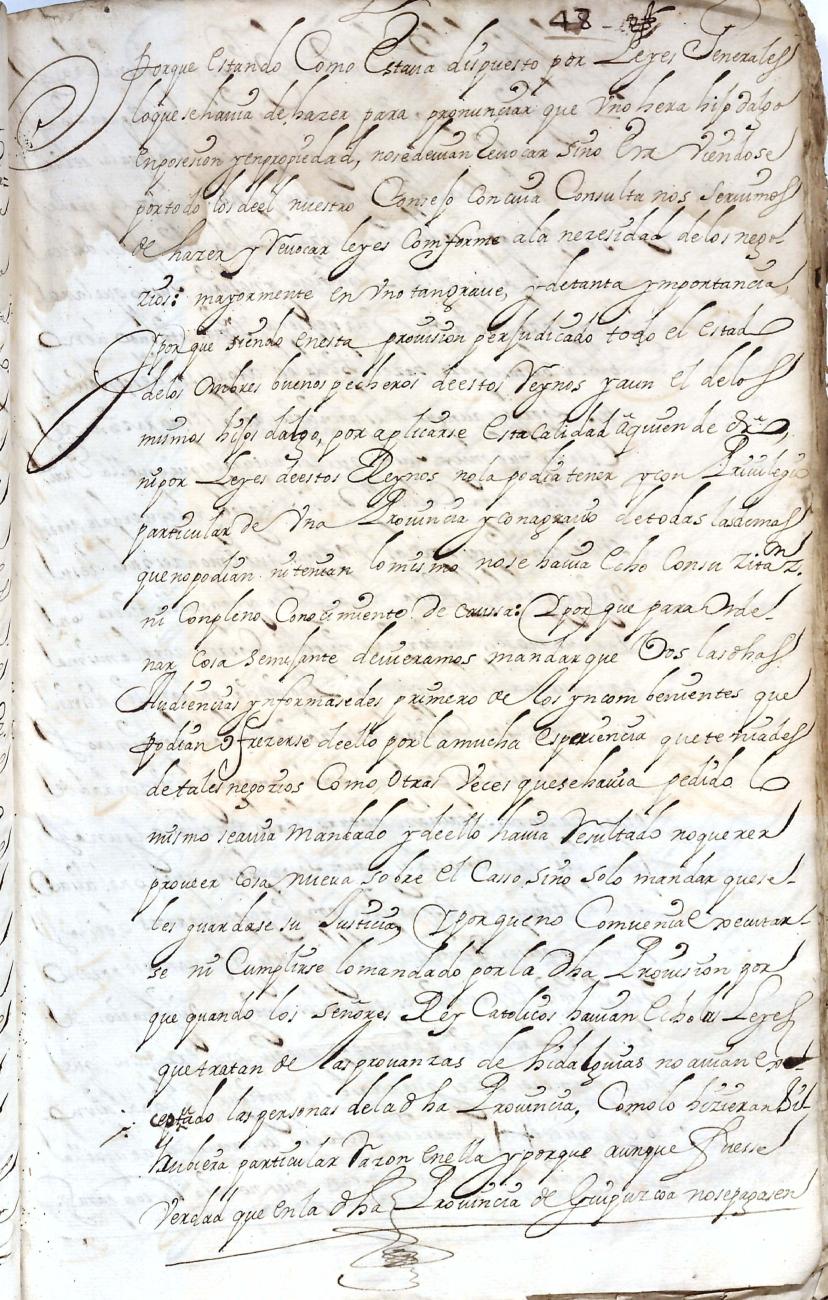 48
Porque estando Como Estava dispuesto por Leyes Jenerales
loquesehavia de hazer para pronunciar que Uno hera hijo dalgo
enposesion yenpropiedad, nosedevian Revocar sino Era viendose
portodo los deel nuestro Consejo Concuia Consulta nos Servimos
de hazer y Revocar leyes Comforme ala nezesidad delos nego-
zios: mayormente en Uno tangrave, y detanta ymportancia,
Yporque siendo enesta provision perjudicado todo el estado
delos ombres buenos pecheros deestos Reynos yaun el delos
mismos hijos dalgo, por aplicarse esta Calidad aquien de dro,
nipor Leyes deestos Reynos nola podia tener ycon Privilegio
particular de Una Provincia yconagravio detodas lasdemas
quenopodian nitenian lomismo nose havia echo Consu zitaon.
ni Conpleno Conocimiento de caussa: Yporque para Orde-
nar Cosa semejante devieramos mandar que Vos las dhas
Audiencias ynformasedes primero de los yncombenientes que
podian ofrezerse deello por lamucha esperiencia queteniades
detales negozios Como Otras Veces quesehavia pedido lo
mismo seavia Mandado ydeello havia Resultado noquerer
proveer Cosa nueva sobre el Caso, sino solo mandar quese-
les guardase su Justicia, Yporqueno Comvenia executar-
se ni Cumplirse lomandado porla dha Provision por
que quando los señores Rey Catolicos havian echo las Leyes
quetratan de las provanzas de hidalguias no avian ex-
ceptado las personas dela dha Provincia, Comolo hizieran si
hubiera particular Razon enella yporque aunque fuesse
Verdad que enla dha Provincia de Guipuzcoa nosepagasen